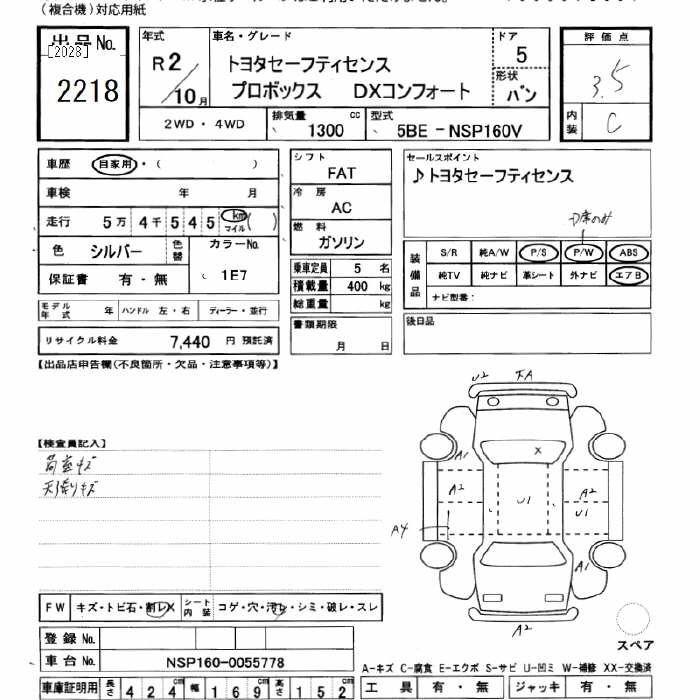 (複合機)対応用紙
出品No.
[2028]
2218
年式
R2/10月
車名・グレード
トヨタセーフティセンス
プロボックス DXコンフォート
ドア
5
形状
バン
評価点
3.5
内装
C
2WD・4WD
排気量 1300 cc
型式 5BE-NSP160V
車歴 自家用・( )
車検 年 月
走行 5万 4千 5 4 5 km マイル ( )
色 シルバー 色替
カラーNo.
1E7
保証書 有・無
モデル年式 年 ハンドル 左・右 ディーラー・並行
リサイクル料金 7,440 円 預託済
シフト
FAT
冷房
AC
燃料
ガソリン
乗車定員 5 名
積載量 400 kg
総重量 kg
書類期限
月 日
セールスポイント
♪トヨタセーフティセンス
装備品
S/R 純A/W P/S P/W ABS
純TV 純ナビ 革シート 外ナビ エアB
ナビ型番:
後日品
【出品店申告欄(不良箇所・欠品・注意事項等)】
【検査員記入】
荷室キズ
天張りキズ
U2
A1
A2
U1
A2
U1
A4
A1
A2
X
スペア
FW キズ・トビ石・割レX シート内装 コゲ・穴・汚レ・シミ・破レ・スレ
登録No.
車台No. NSP160-0055778
車庫証明用 長さ 424cm 幅 169cm 高さ 152cm
A-キズ C-腐食 E-エクボ S-サビ U-凹ミ W-補修 XX-交換済
工具 有・無 ジャッキ 有・無